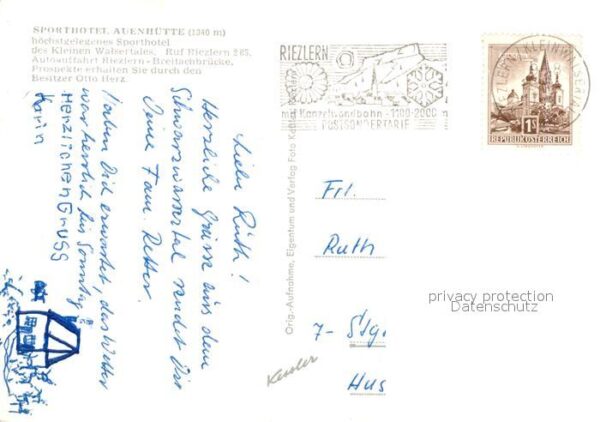 SPORTHOTEL AUENHÜTTE (1240 m)
höchstgelegenes Sporthotel
des Kleinen Walsertales. Ruf Riezlern 265.
Autoauffahrt Riezlern - Breitachbrücke.
Prospekte erhalten Sie durch den
Besitzer Otto Herz
RIEZLERN
mit Kanzelwandbahn - 1100-2000 m
POSTSONDERTARIF
RIEZLERN KLEINWALSERTAL
1S
REPUBLIK ÖSTERREICH
Liebe Ruth!
Herzliche Grüsse aus dem
Schwarzwassertal sendet Dir
Deine Fam. Retter.
Haben Dich erwartet, das Wetter
war herrlich bis Sonntag
Herzlichen Gruss
Karin
Orig.-Aufnahme, Eigentum und Verlag Foto
Frl.
Ruth
7- Stgt.
Hus
Kessler
privacy protection
Datenschutz